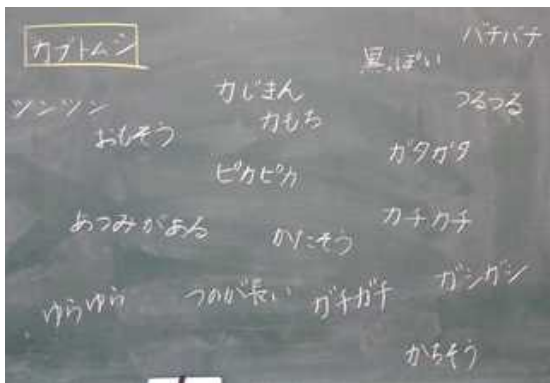 カブトムシ
バチバチ
黒っぽい
ツンツン
力じまん
つるつる
おもそう
力もち
ガタガタ
ピカピカ
あつみがある
かたそう
カチカチ
ゆらゆら
つのが長い
ガチガチ
ガシガシ
かちそう